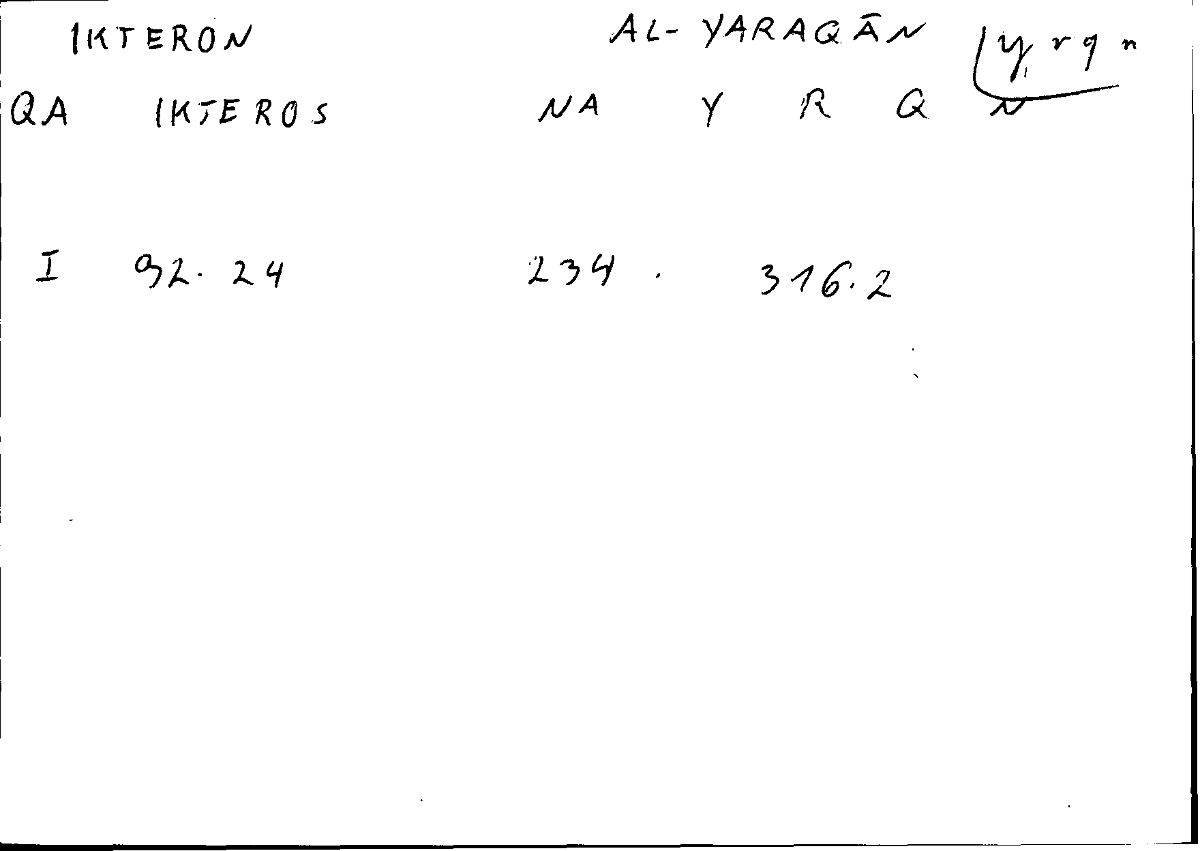 IKTERON AL-YARAQĀN yrqn
QA IKTEROS NA Y R Q N
I 92.24 234. 316.2